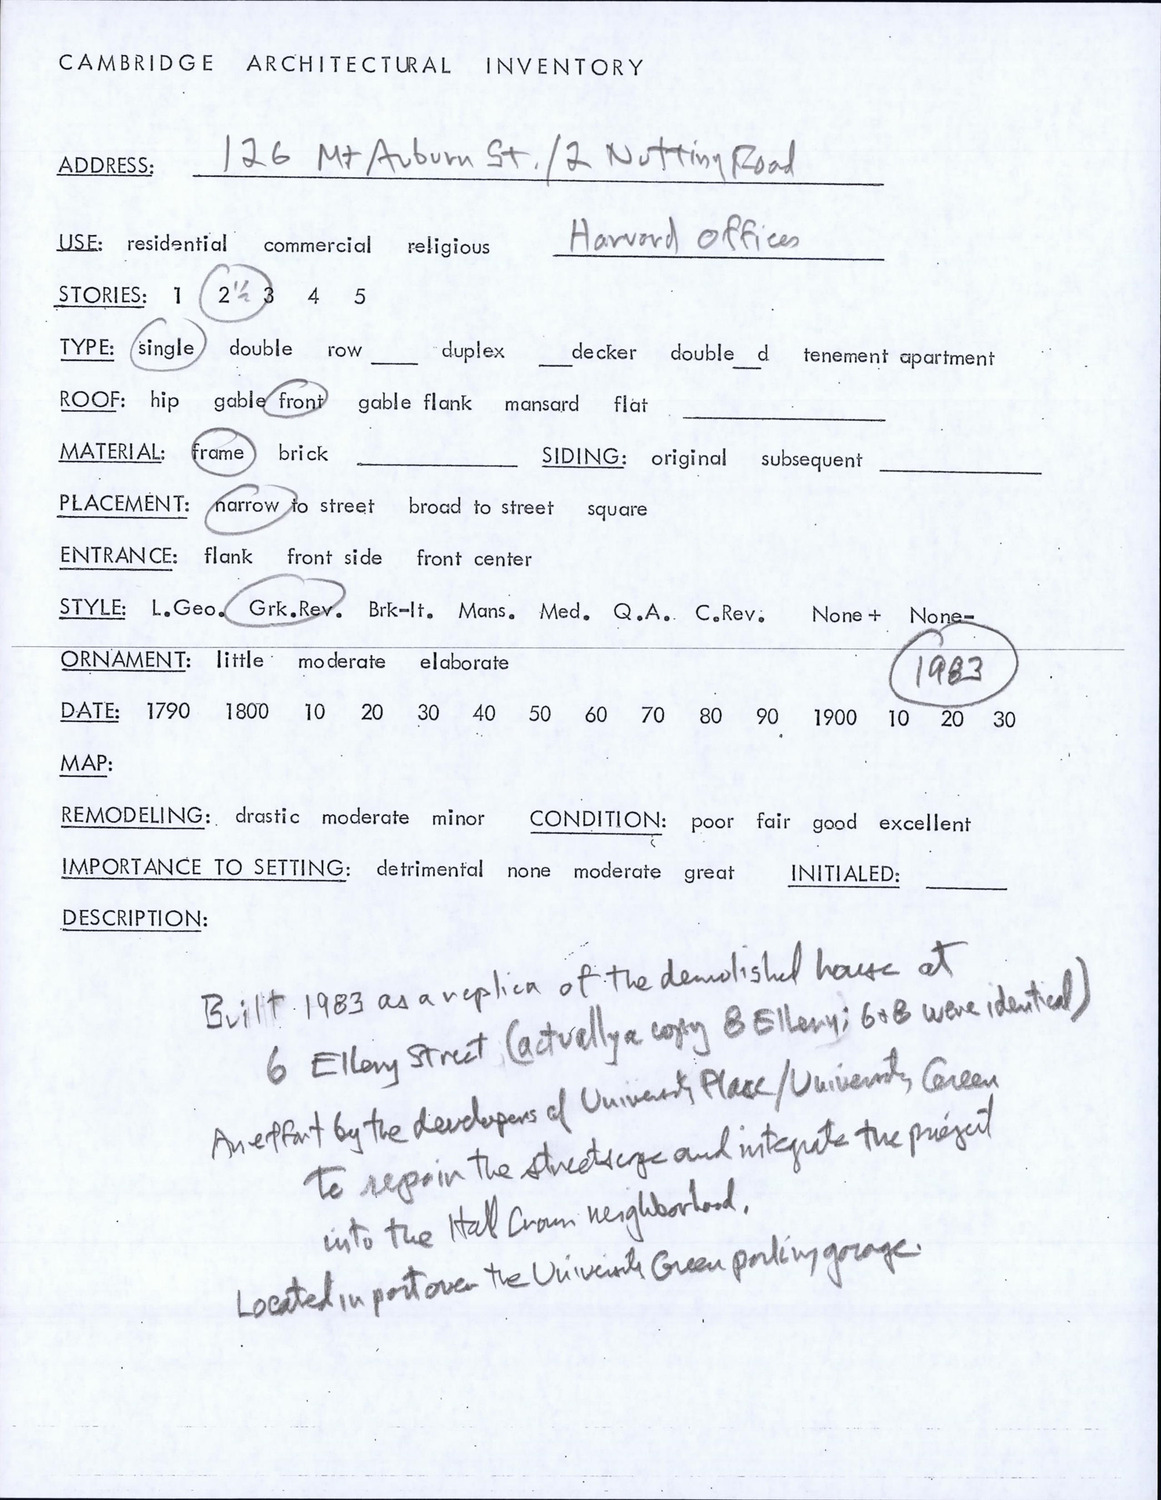 CAMBRIDGE ARCHITECTURAL INVENTORY
ADDRESS: 126 Mt Auburn St./2 Nutting Road
USE: residential commercial religious Harvard offices
STORIES: 1 2 1/2 3 4 5
TYPE: single double row ___ duplex ___decker double__d tenement apartment
ROOF: hip gable front gable flank mansard flat ___
MATERIAL: frame brick ___ SIDING: original subsequent ___
PLACEMENT: narrow to street broad to street square
ENTRANCE: flank front side front center
STYLE: L.Geo. Grk.Rev. Brk-It. Mans. Med. Q.A. C.Rev. None + None-
ORNAMENT: little moderate elaborate 1983
DATE: 1790 1800 10 20 30 40 50 60 70 80 90 1900 10 20 30
MAP:
REMODELING: drastic moderate minor CONDITION: poor fair good excellent
IMPORTANCE TO SETTING: detrimental none moderate great INITIALED: ___
DESCRIPTION:
Built 1983 as a replica of the demolished house at
6 Ellery Street (actually a copy 8 Ellery; 6+8 were identical)
An effort by the developers of University Place/University Green
to regain the streetscape and integrate the project
into the Half Crown neighborhood.
Located in part over the University Green parking garage.